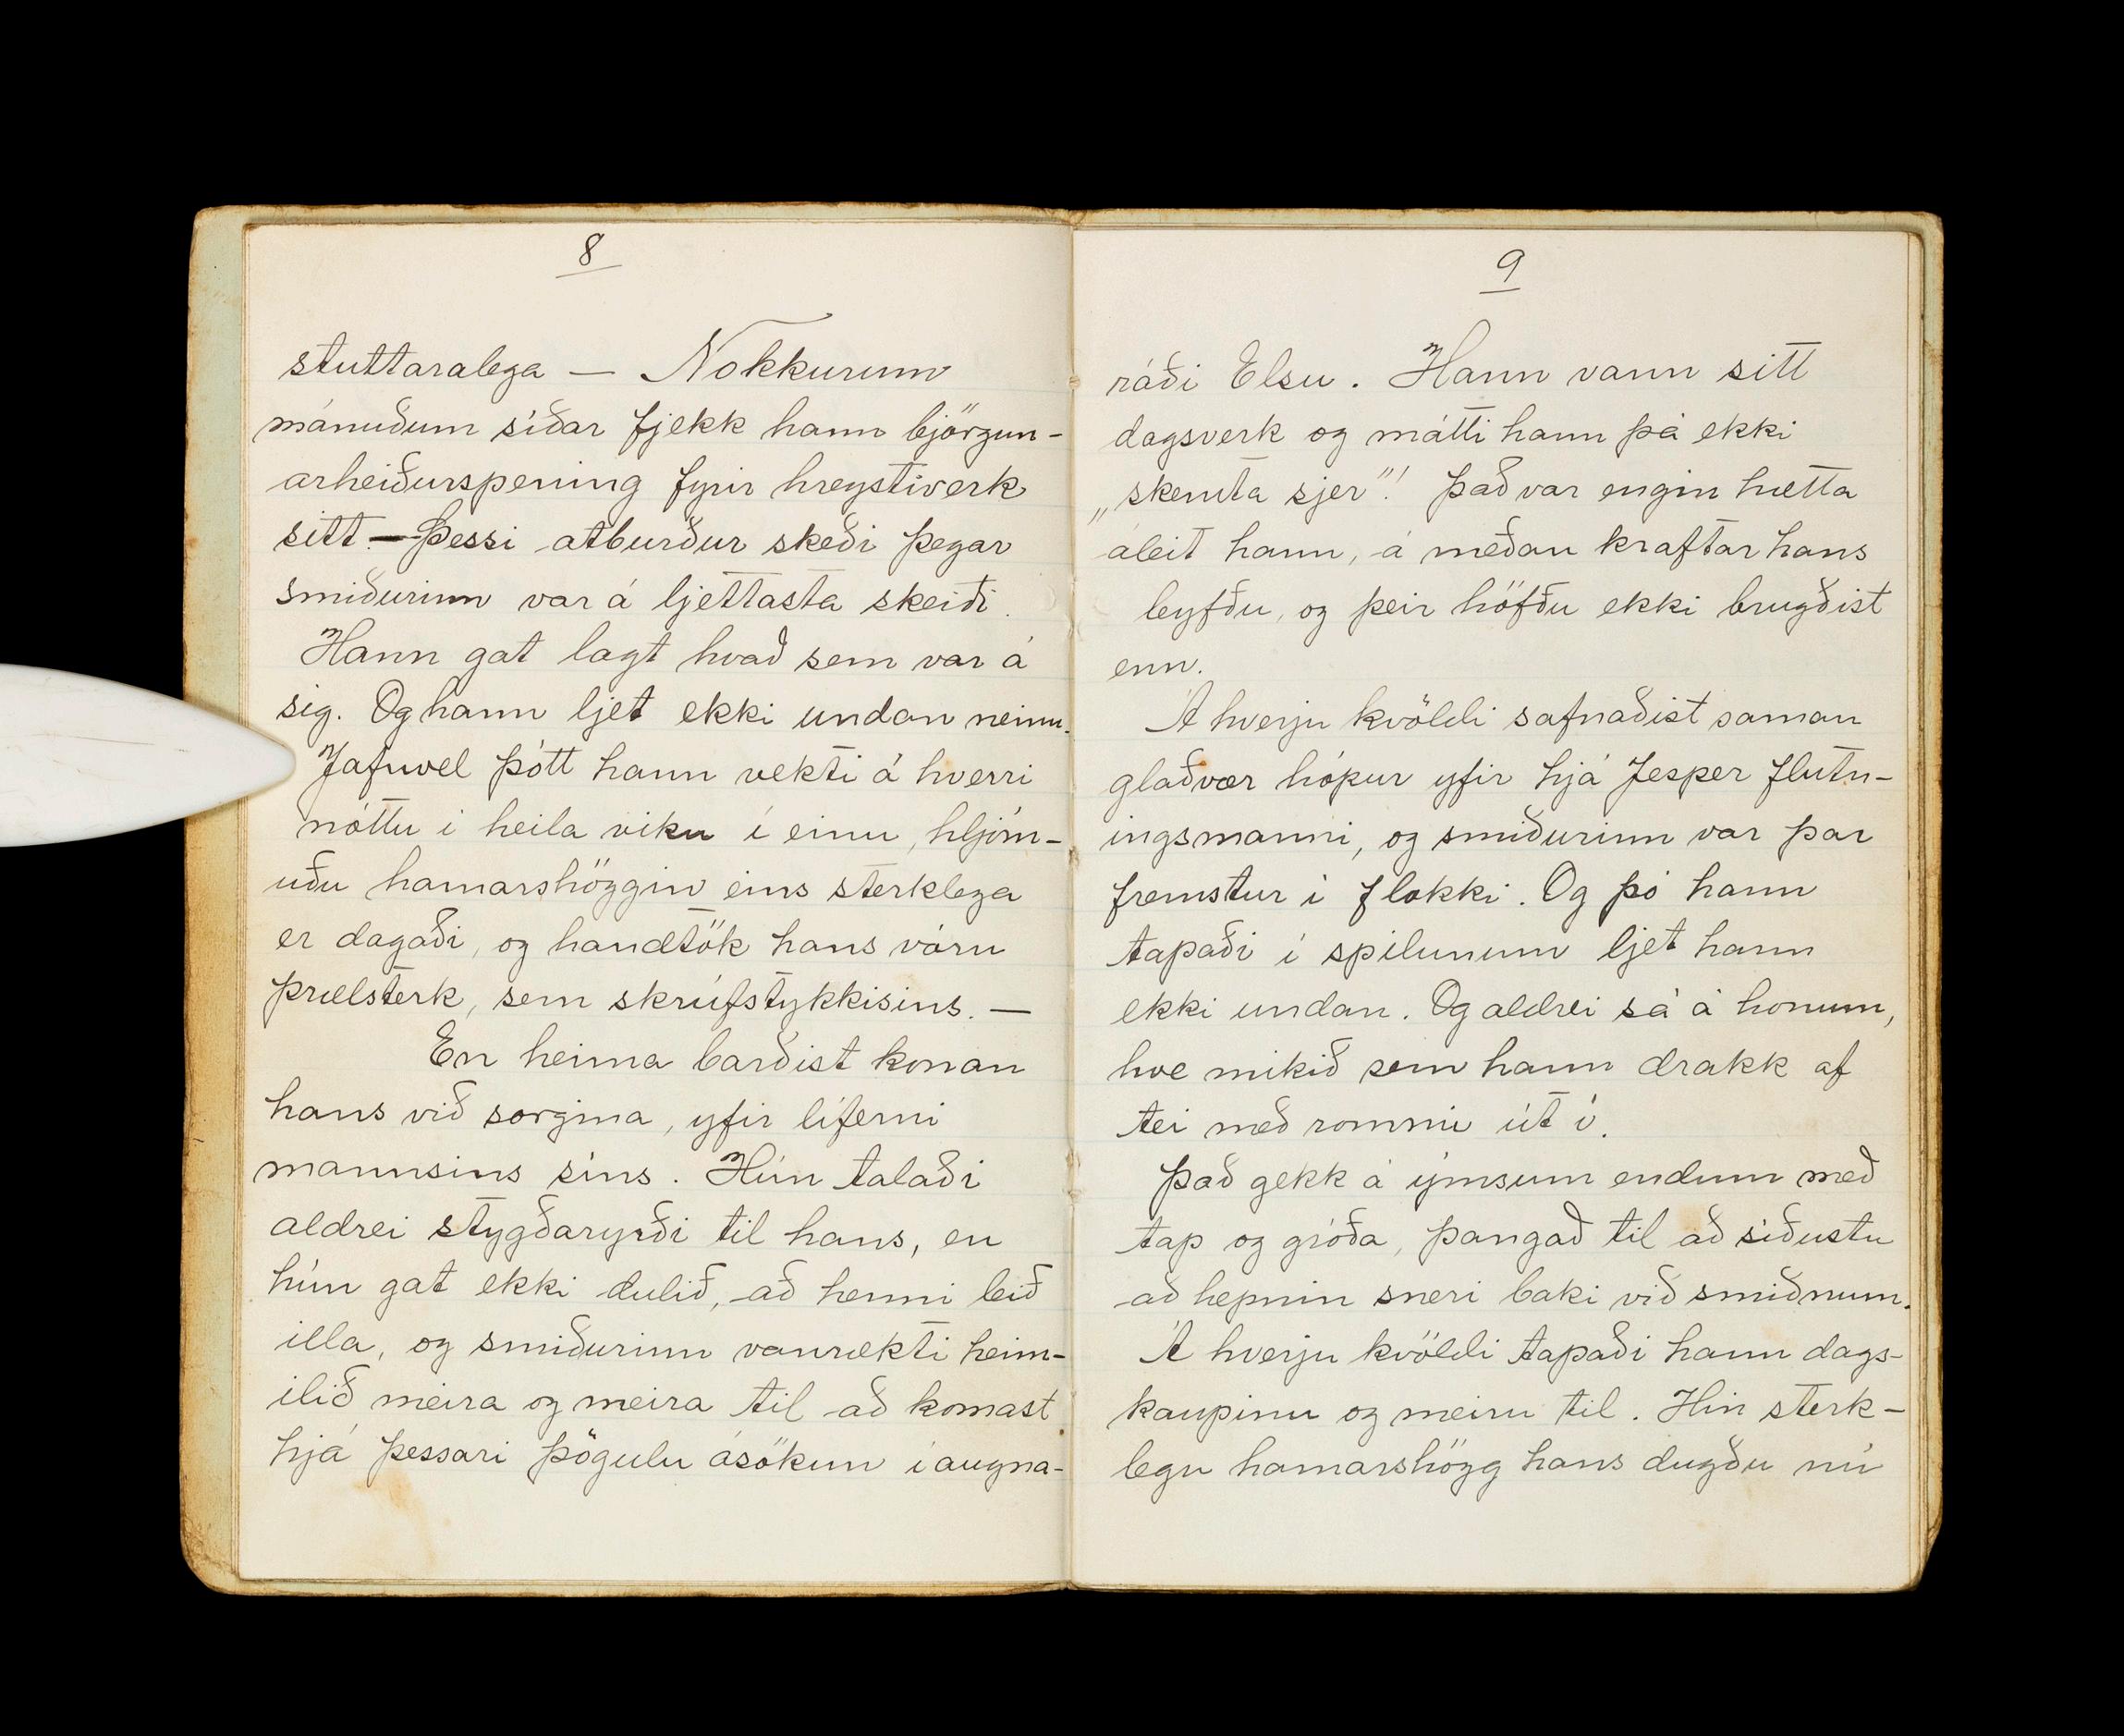 8
stuttaralega — Nokkurum
mánuðum síðar fjekk hann björgun-
arheiðurspening fyrir hreystiverk
sitt — Þessi atburður skeði þegar
smiðurinn var á ljettasta skeiði.
Hann gat lagt hvað sem var á
sig. Og hann ljet ekki undan neinu.
Jafnvel þótt hann vekti á hverri
nóttu í heila viku í einu, hljóm-
uðu hamarshöggin eins sterklega
er dagaði, og handtök hans váru
þrælsterk, sem skrúfstykkisins. —
En heima barðist konan
hans við sorgina, yfir líferni
mannsins síns. Hún talaði
aldrei stygðaryrði til hans, en
hún gat ekki dulið, að henni leið
illa, og smiðurinn vanrækti heim-
ilið meira og meira til að komast
hjá þessari þögulu ásökun í augna-
9
ráði Elsu. Hann vann sitt
dagsverk og mátti hann þá ekki
„skemta sjer"! Það var engin hætta
áleit hann, á meðan kraftar hans
leyfðu, og þeir höfðu ekki brugðist
enn.
Á hverju kvöldi safnaðist saman
glaðvær hópur yfir hjá Jesper flutn-
ingsmanni, og smiðurinn var þar
fremstur í flokki. Og þó hann
tapaði í spilunum ljet hann
ekki undan. Og aldrei sá á honum,
hve mikið sem hann drakk af
tei með rommi út í.
Það gekk á ýmsum endum með
tap og gróða, þangað til að síðustu
að hepnin sneri baki við smiðnum.
Á hverju kvöldi tapaði hann dags-
kaupinu og meiru til. Hin sterk-
legu hamarshögg hans dugðu nú